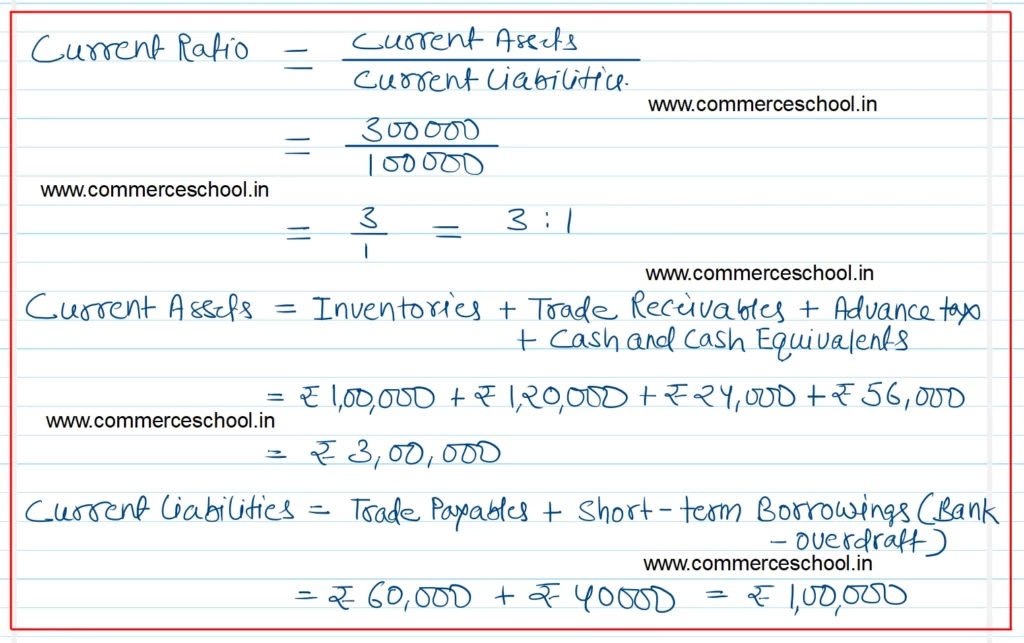 Current Ratio = Current Assets
Current Liabilities.
www.commerceschool.in
= 300000
100000
www.commerceschool.in
= 3 = 3 : 1
1
www.commerceschool.in
Current Assets = Inventories + Trade Receivables + Advance tax
+ Cash and Cash Equivalents
= ₹ 1,00,000 + ₹ 1,20,000 + ₹ 24,000 + ₹ 56,000
www.commerceschool.in
= ₹ 3,00,000
Current Liabilities = Trade Payables + Short-term Borrowings (Bank
- overdraft)
www.commerceschool.in
= ₹ 60,000 + ₹ 40000 = ₹ 1,00,000